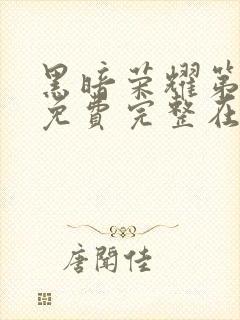 黑暗荣耀第
免費完整在
唐闻佳